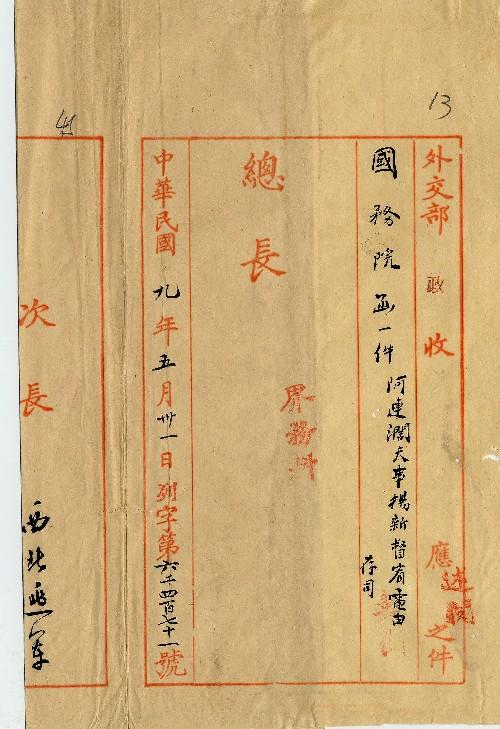 13
外交部 政 收 應 速 之件
國務院函一件 阿連澗夫事楊新督宥電由
存司
界務科
總長
中華民國九年五月卅一日列字第六千四百七十一號
次長
西北邊軍